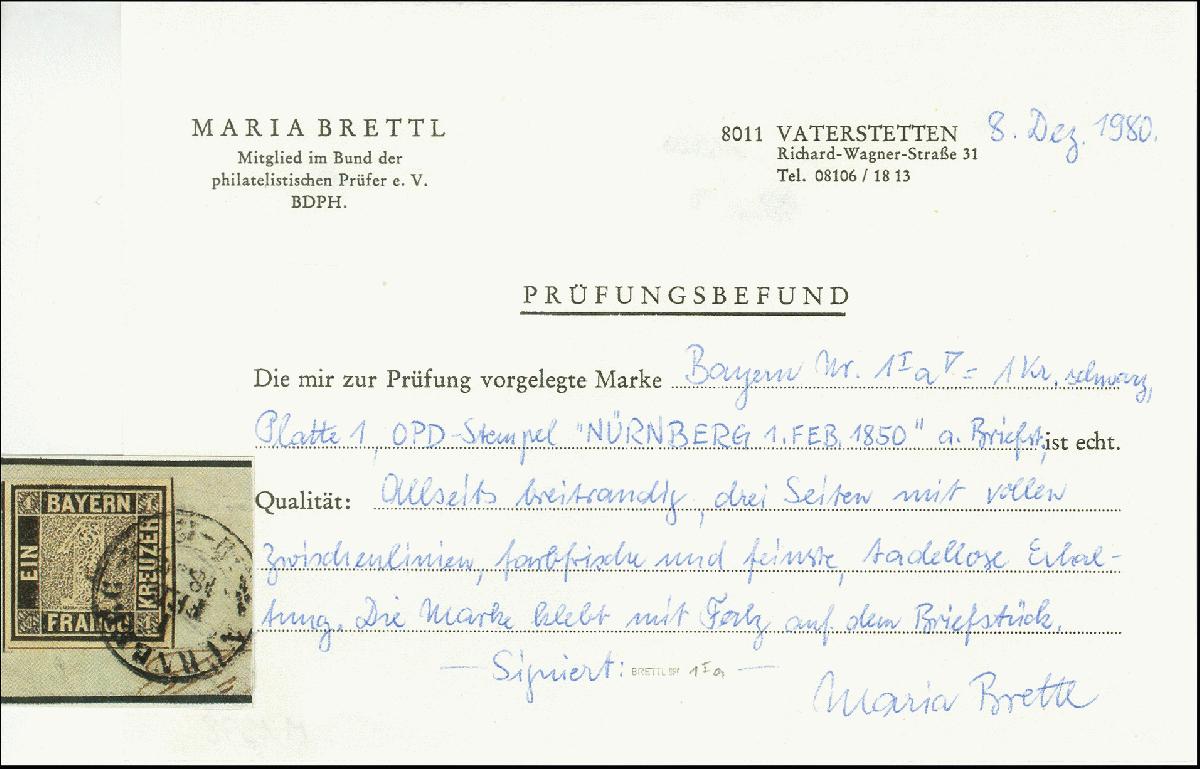 MARIA BRETTL
Mitglied im Bund der
philatelistischen Prüfer e. V.
BDPH.
8011 VATERSTETTEN 8. Dez. 1980.
Richard-Wagner-Straße 31
Tel. 08106 / 18 13
PRÜFUNGSBEFUND
Die mir zur Prüfung vorgelegte Marke Bayern Nr. 1 I a = 1 Kr. schwarz,
Platte 1, OPD-Stempel "NÜRNBERG 1. FEB. 1850" a. Briefst. ist echt.
Qualität: Allseits breitrandig, drei Seiten mit vollen
Zwischenlinien, farbfrische und feinste, tadellose Erhal-
tung. Die Marke klebt mit Falz auf dem Briefstück.
— Signiert: BRETTL 1 I a —
Maria Brettl
BAYERN
EIN
KREUZER
FRANCO